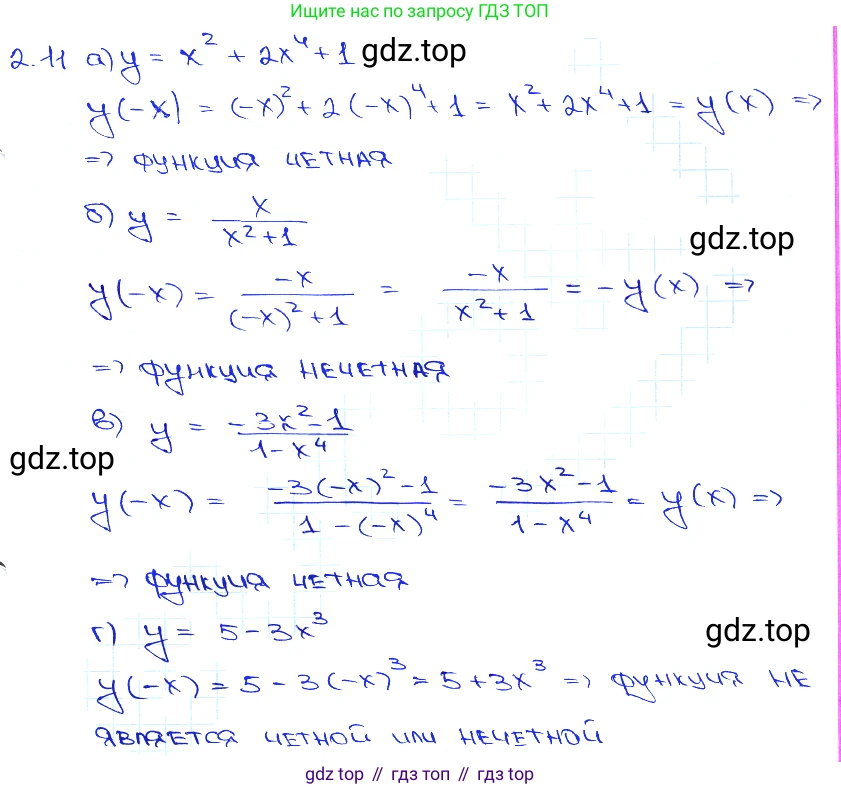 Ищите нас по запросу ГДЗ ТОП
2.11 а) y = x² + 2x⁴ + 1 gdz.top
y(-x) = (-x)² + 2(-x)⁴ + 1 = x² + 2x⁴ + 1 = y(x) =>
=> функция четная
б) y = x / x² + 1
gdz.top
y(-x) = -x / (-x)² + 1 = -x / x² + 1 = -y(x) =>
=> функция нечетная
в) y = -3x² - 1 / 1 - x⁴
gdz.top
y(-x) = -3(-x)² - 1 / 1 - (-x)⁴ = -3x² - 1 / 1 - x⁴ = y(x) =>
=> функция четная
г) y = 5 - 3x³
gdz.top
y(-x) = 5 - 3(-x)³ = 5 + 3x³ => функция не
является четной или нечетной
gdz top // гдз топ // gdz top